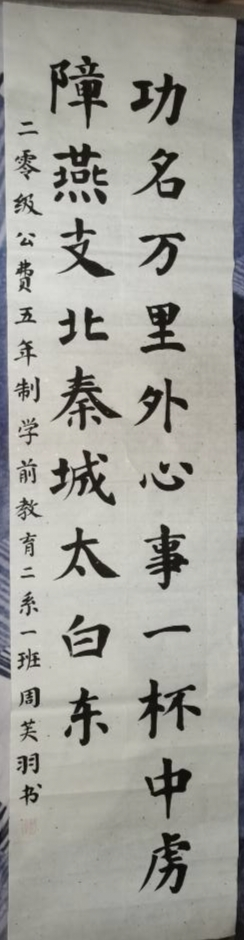 功名万里外心事一杯中虏
障燕支北秦城太白东
二零级公费五年制学前教育二系一班周芙羽书